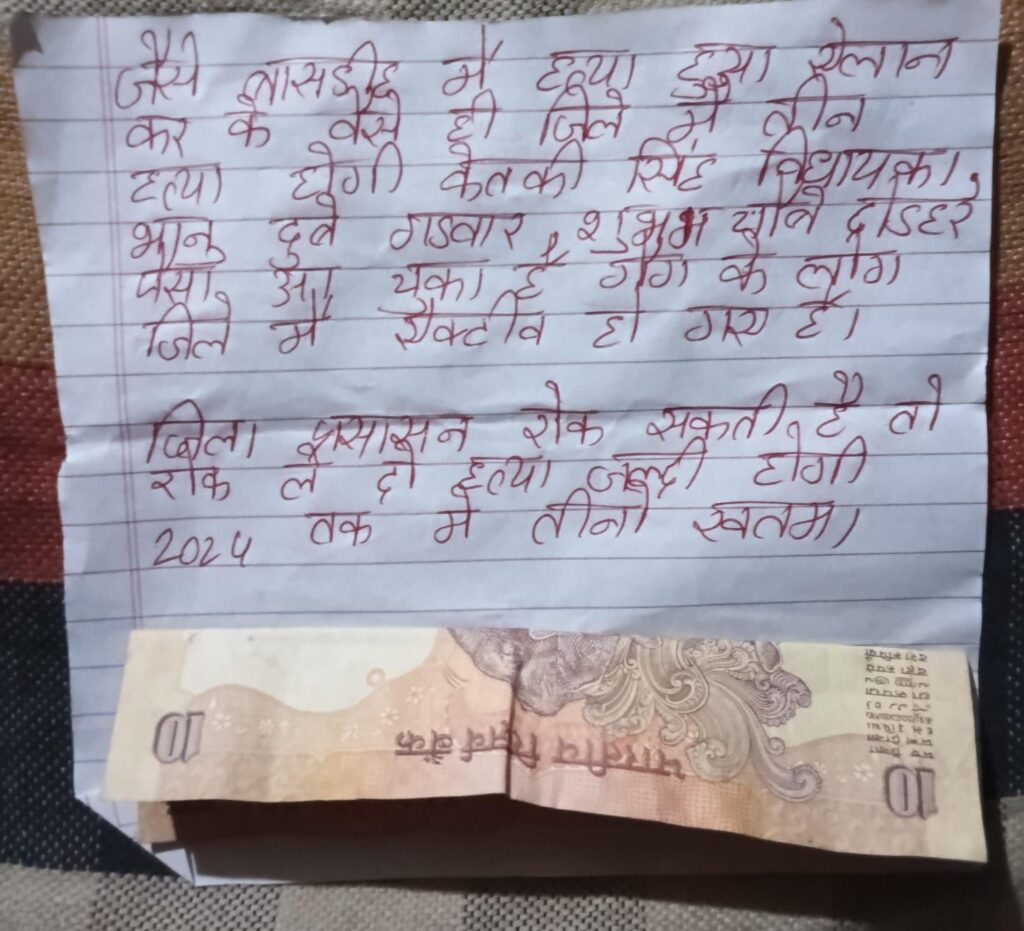 जैसे बासडीह में हत्या हुआ ऐलान
कर के वैसे ही जिले में तीन
हत्या होगी केतकी सिंह विधायका,
भानु दुबे गडवार, शुभम चौबे
पैसा आ चुका है गैंग के लोग
जिले में एक्टीव हो गए है।
जिला प्रसासन रोक सकती है तो
रोक ले दो हत्या जल्दी होगी
2024 तक में तीनो खतम।
10
भारतीय रिज़र्व बैंक
10